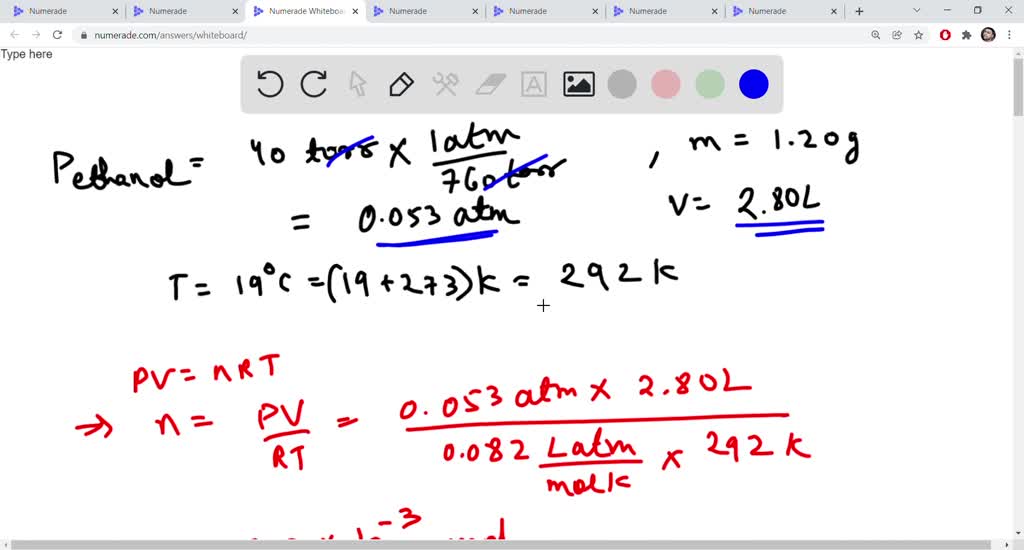 Numerade Numerade Numerade Whiteboa Numerade Numerade Numerade Numerade
numerade.com/answers/whiteboard/
Type here
A
Pethanol = 40 torr × 1 atm / 760 torr , m = 1.20g
= 0.053 atm V = 2.80L
T = 19°C = (19 + 273) K = 292 K
PV = nRT
⇒ n = PV / RT = 0.053 atm × 2.80L / 0.082 L atm / mol K × 292 K
10-3 mol